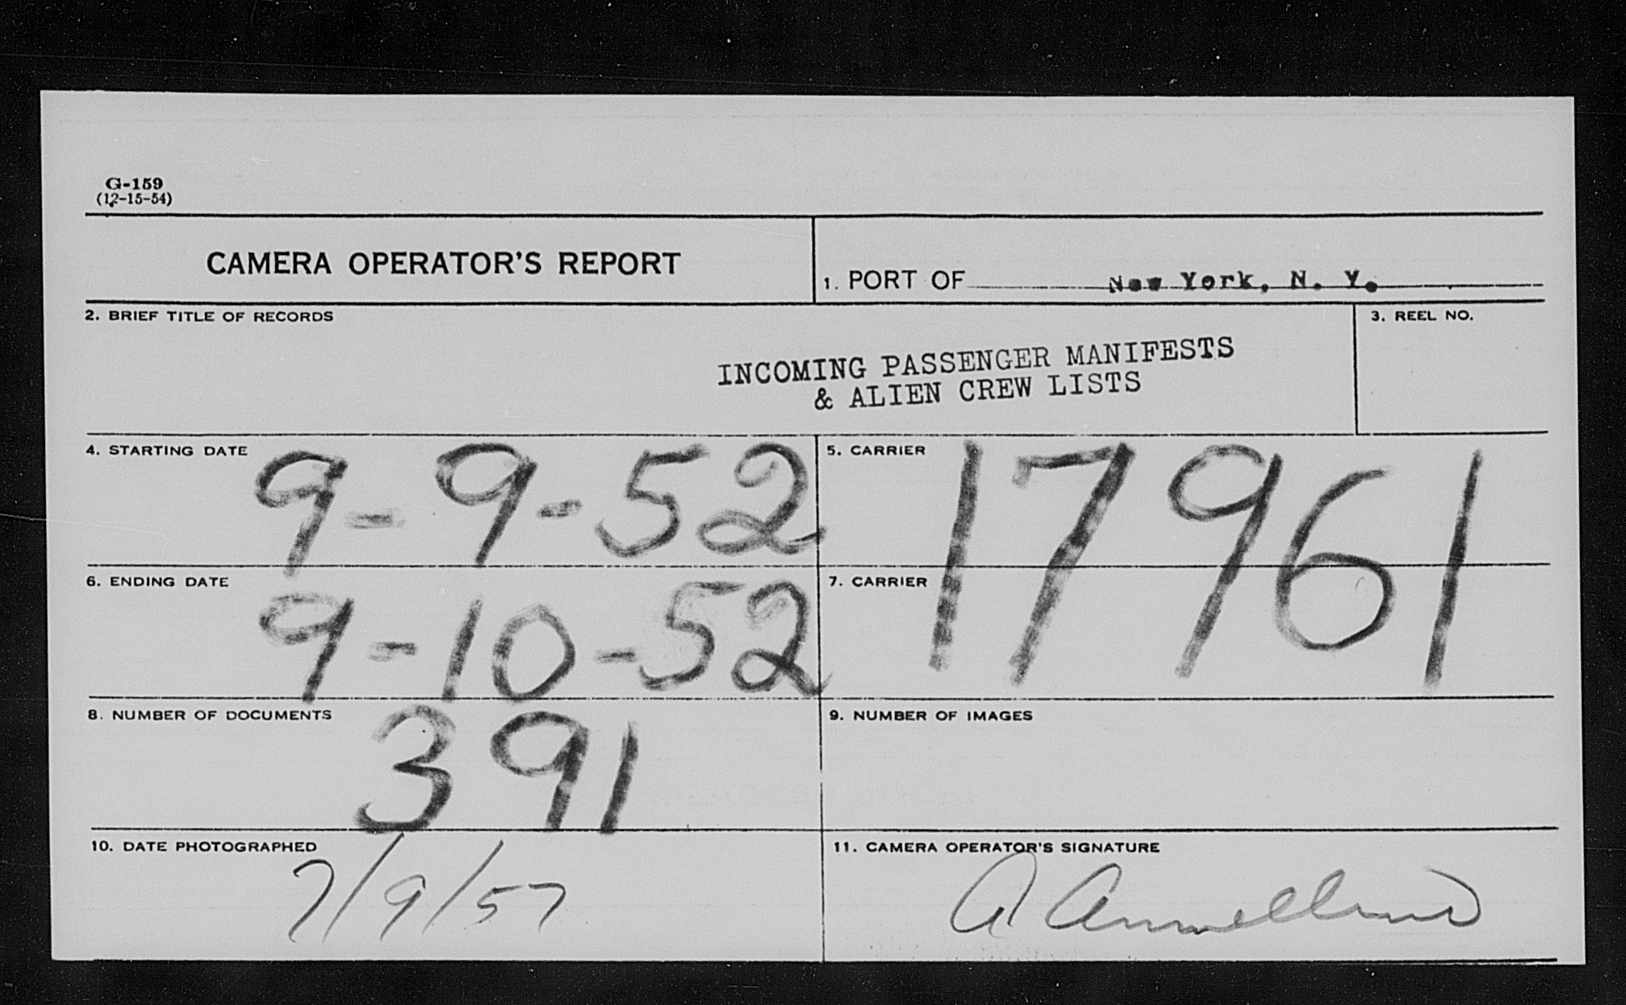 G-159
(12-15-54)
CAMERA OPERATOR'S REPORT
1. PORT OF New York, N. Y.
2. BRIEF TITLE OF RECORDS
3. REEL NO.
INCOMING PASSENGER MANIFESTS
& ALIEN CREW LISTS
4. STARTING DATE 9-9-52
5. CARRIER 17961
6. ENDING DATE 9-10-52
7. CARRIER
8. NUMBER OF DOCUMENTS 391
9. NUMBER OF IMAGES
10. DATE PHOTOGRAPHED 7/9/57
11. CAMERA OPERATOR'S SIGNATURE